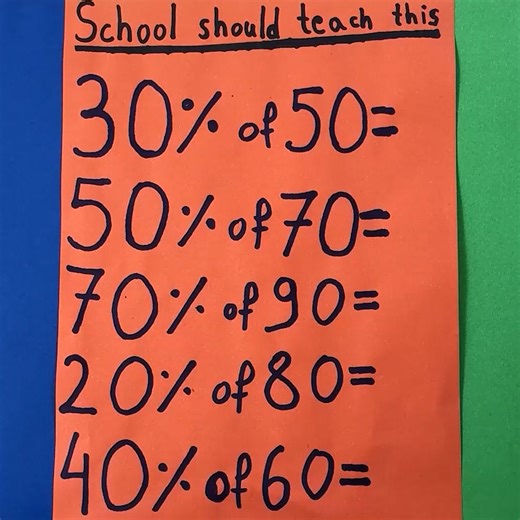 School should teach this
30% of 50=
50% of 70=
70% of 90=
20% of 80=
40% of 60=